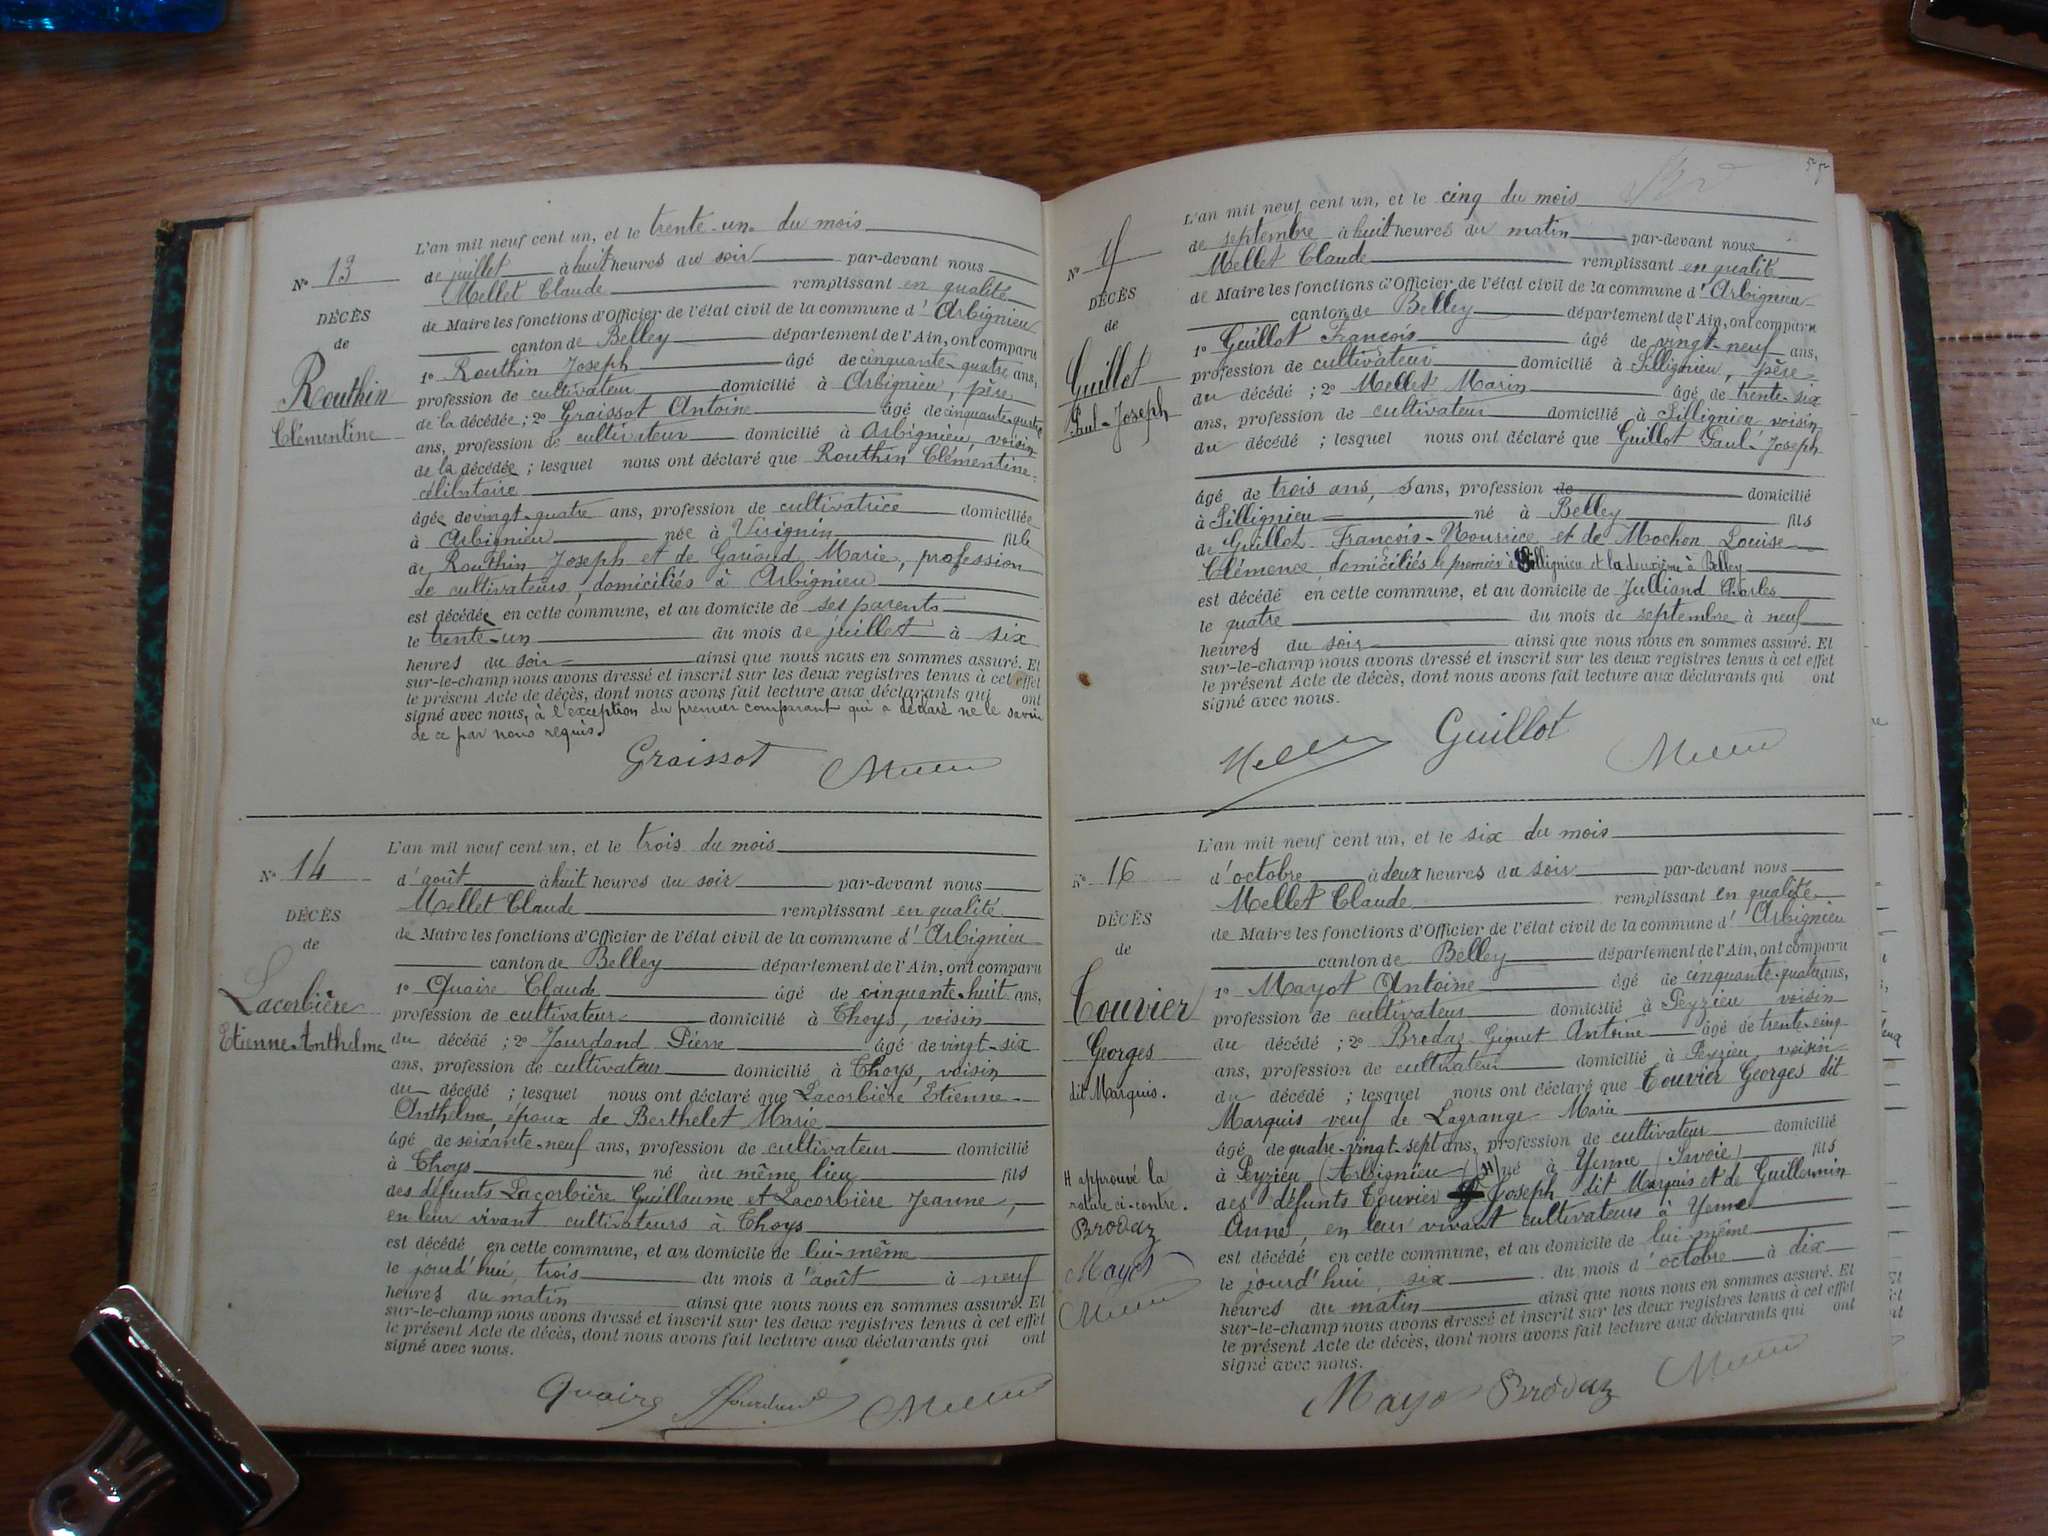 Nº 13
DÉCÈS
de
Routhin
Clémentine
L'an mil neuf cent un, et le trente-un du mois
de juillet à huit heures du soir par-devant nous
Mellet Claude remplissant en qualité
de Maire les fonctions d'Officier de l'état civil de la commune d'Arbignieu
canton de Belley département de l'Ain, ont comparu
1º Routhin Joseph âgé de cinquante-quatre ans,
profession de cultivateur domicilié à Arbignieu, père
de la décédée ; 2º Graissot Antoine âgé de cinquante-quatre
ans, profession de cultivateur domicilié à Arbignieu, voisin
de la décédée ; lesquel nous ont déclaré que Routhin Clémentine
célibataire
âgée de vingt-quatre ans, profession de cultivatrice domiciliée
à Arbignieu née à Virignin fille
de Routhin Joseph et de Marie, profession
de cultivateurs, domiciliés à Arbignieu
est décédée en cette commune, et au domicile de ses parents
le trente-un du mois de juillet à six
heures du soir ainsi que nous nous en sommes assuré. Et
sur-le-champ nous avons dressé et inscrit sur les deux registres tenus à cet effet
le présent Acte de décès, dont nous avons fait lecture aux déclarants qui ont
signé avec nous, à l'exception du premier comparant qui a déclaré ne le savoir
de ce par nous requis.
Graissot
Nº 14
DÉCÈS
de
Lacorbière
Etienne-Anthelme
L'an mil neuf cent un, et le trois du mois
d'août à huit heures du soir par-devant nous
Mellet Claude remplissant en qualité
de Maire les fonctions d'Officier de l'état civil de la commune d'Arbignieu
canton de Belley département de l'Ain, ont comparu
1º Quaire Claude âgé de cinquante-huit ans,
profession de cultivateur domicilié à Thoys, voisin
du décédé ; 2º Jourdand Pierre âgé de vingt-six
ans, profession de cultivateur domicilié à Thoys, voisin
du décédé ; lesquel nous ont déclaré que Lacorbière Etienne-
Anthelme, époux de Berthelet Marie
âgé de soixante-neuf ans, profession de cultivateur domicilié
à Thoys né au même lieu fils
des défunts Lacorbière Guillaume et Lacorbière Jeanne,
en leur vivant cultivateurs à Thoys
est décédé en cette commune, et au domicile de lui-même
le jourd'hui trois du mois d'août à neuf
heures du matin ainsi que nous nous en sommes assuré. Et
sur-le-champ nous avons dressé et inscrit sur les deux registres tenus à cet effet
le présent Acte de décès, dont nous avons fait lecture aux déclarants qui ont
signé avec nous.
Quaire Jourdand
Nº
DÉCÈS
de
Guillot
Paul-Joseph
L'an mil neuf cent un, et le cinq du mois
de septembre à huit heures du matin par-devant nous
Mellet Claude remplissant en qualité
de Maire les fonctions d'Officier de l'état civil de la commune d'Arbignieu
canton de Belley département de l'Ain, ont comparu
1º Guillot François âgé de vingt-neuf ans,
profession de cultivateur domicilié à Sillignieu, père
du décédé ; 2º Mellet Marin âgé de trente-six
ans, profession de cultivateur domicilié à Sillignieu voisin
du décédé ; lesquel nous ont déclaré que Guillot Paul-Joseph
âgé de trois ans, sans, profession de domicilié
à Sillignieu né à Belley fils
de Guillot François-Mourice et de Mochon Louise
Clémence, domiciliés le premier à Sillignieu et la deuxième à Belley
est décédé en cette commune, et au domicile de Julliand Charles
le quatre du mois de septembre à neuf
heures du soir ainsi que nous nous en sommes assuré. Et
sur-le-champ nous avons dressé et inscrit sur les deux registres tenus à cet effet
le présent Acte de décès, dont nous avons fait lecture aux déclarants qui ont
signé avec nous.
Guillot
Nº 16
DÉCÈS
de
Touvier
Georges
dit Marquis.
H approuvé la
rature ci-contre.
Brodaz
Mayot
L'an mil neuf cent un, et le six du mois
d'octobre à deux heures du soir par-devant nous
Mellet Claude remplissant en qualité
de Maire les fonctions d'Officier de l'état civil de la commune d'Arbignieu
canton de Belley département de l'Ain, ont comparu
1º Mayot Antoine âgé de cinquante-quatre ans,
profession de cultivateur domicilié à Peyzieu voisin
du décédé ; 2º Brodaz-Giguet Antoine âgé de trente-cinq
ans, profession de cultivateur domicilié à Peyzieu voisin
du décédé ; lesquel nous ont déclaré que Touvier Georges dit
Marquis veuf de Lagrange Marie
âgé de quatre-vingt-sept ans, profession de cultivateur domicilié
à Peyzieu (Arbignieu) H né à Yenne (Savoie) fils
des défunts Touvier Joseph dit Marquis et de Guillermin
Anne, en leur vivant cultivateurs à Yenne
est décédé en cette commune, et au domicile de lui-même
le jourd'hui six du mois d'octobre à dix
heures du matin ainsi que nous nous en sommes assuré. Et
sur-le-champ nous avons dressé et inscrit sur les deux registres tenus à cet effet
le présent Acte de décès, dont nous avons fait lecture aux déclarants qui ont
signé avec nous.
Mayo Brodaz